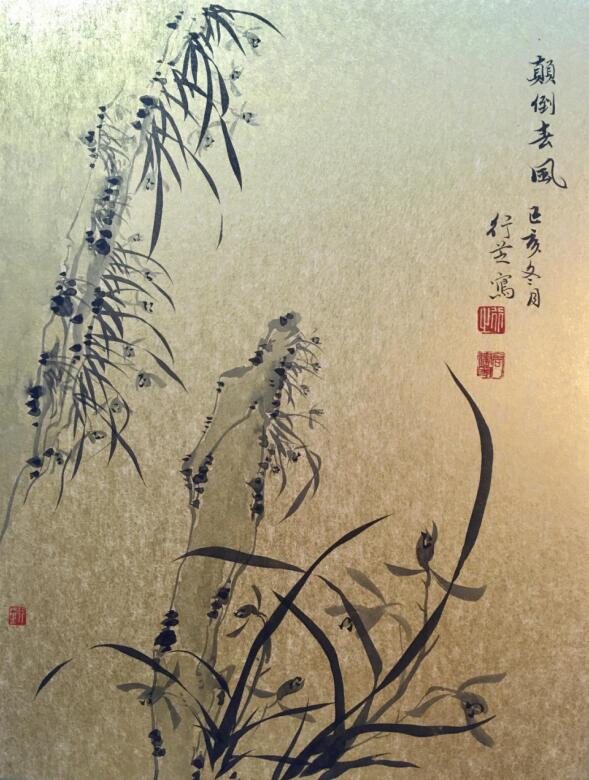 顛倒春風
己亥冬月
行芝寫